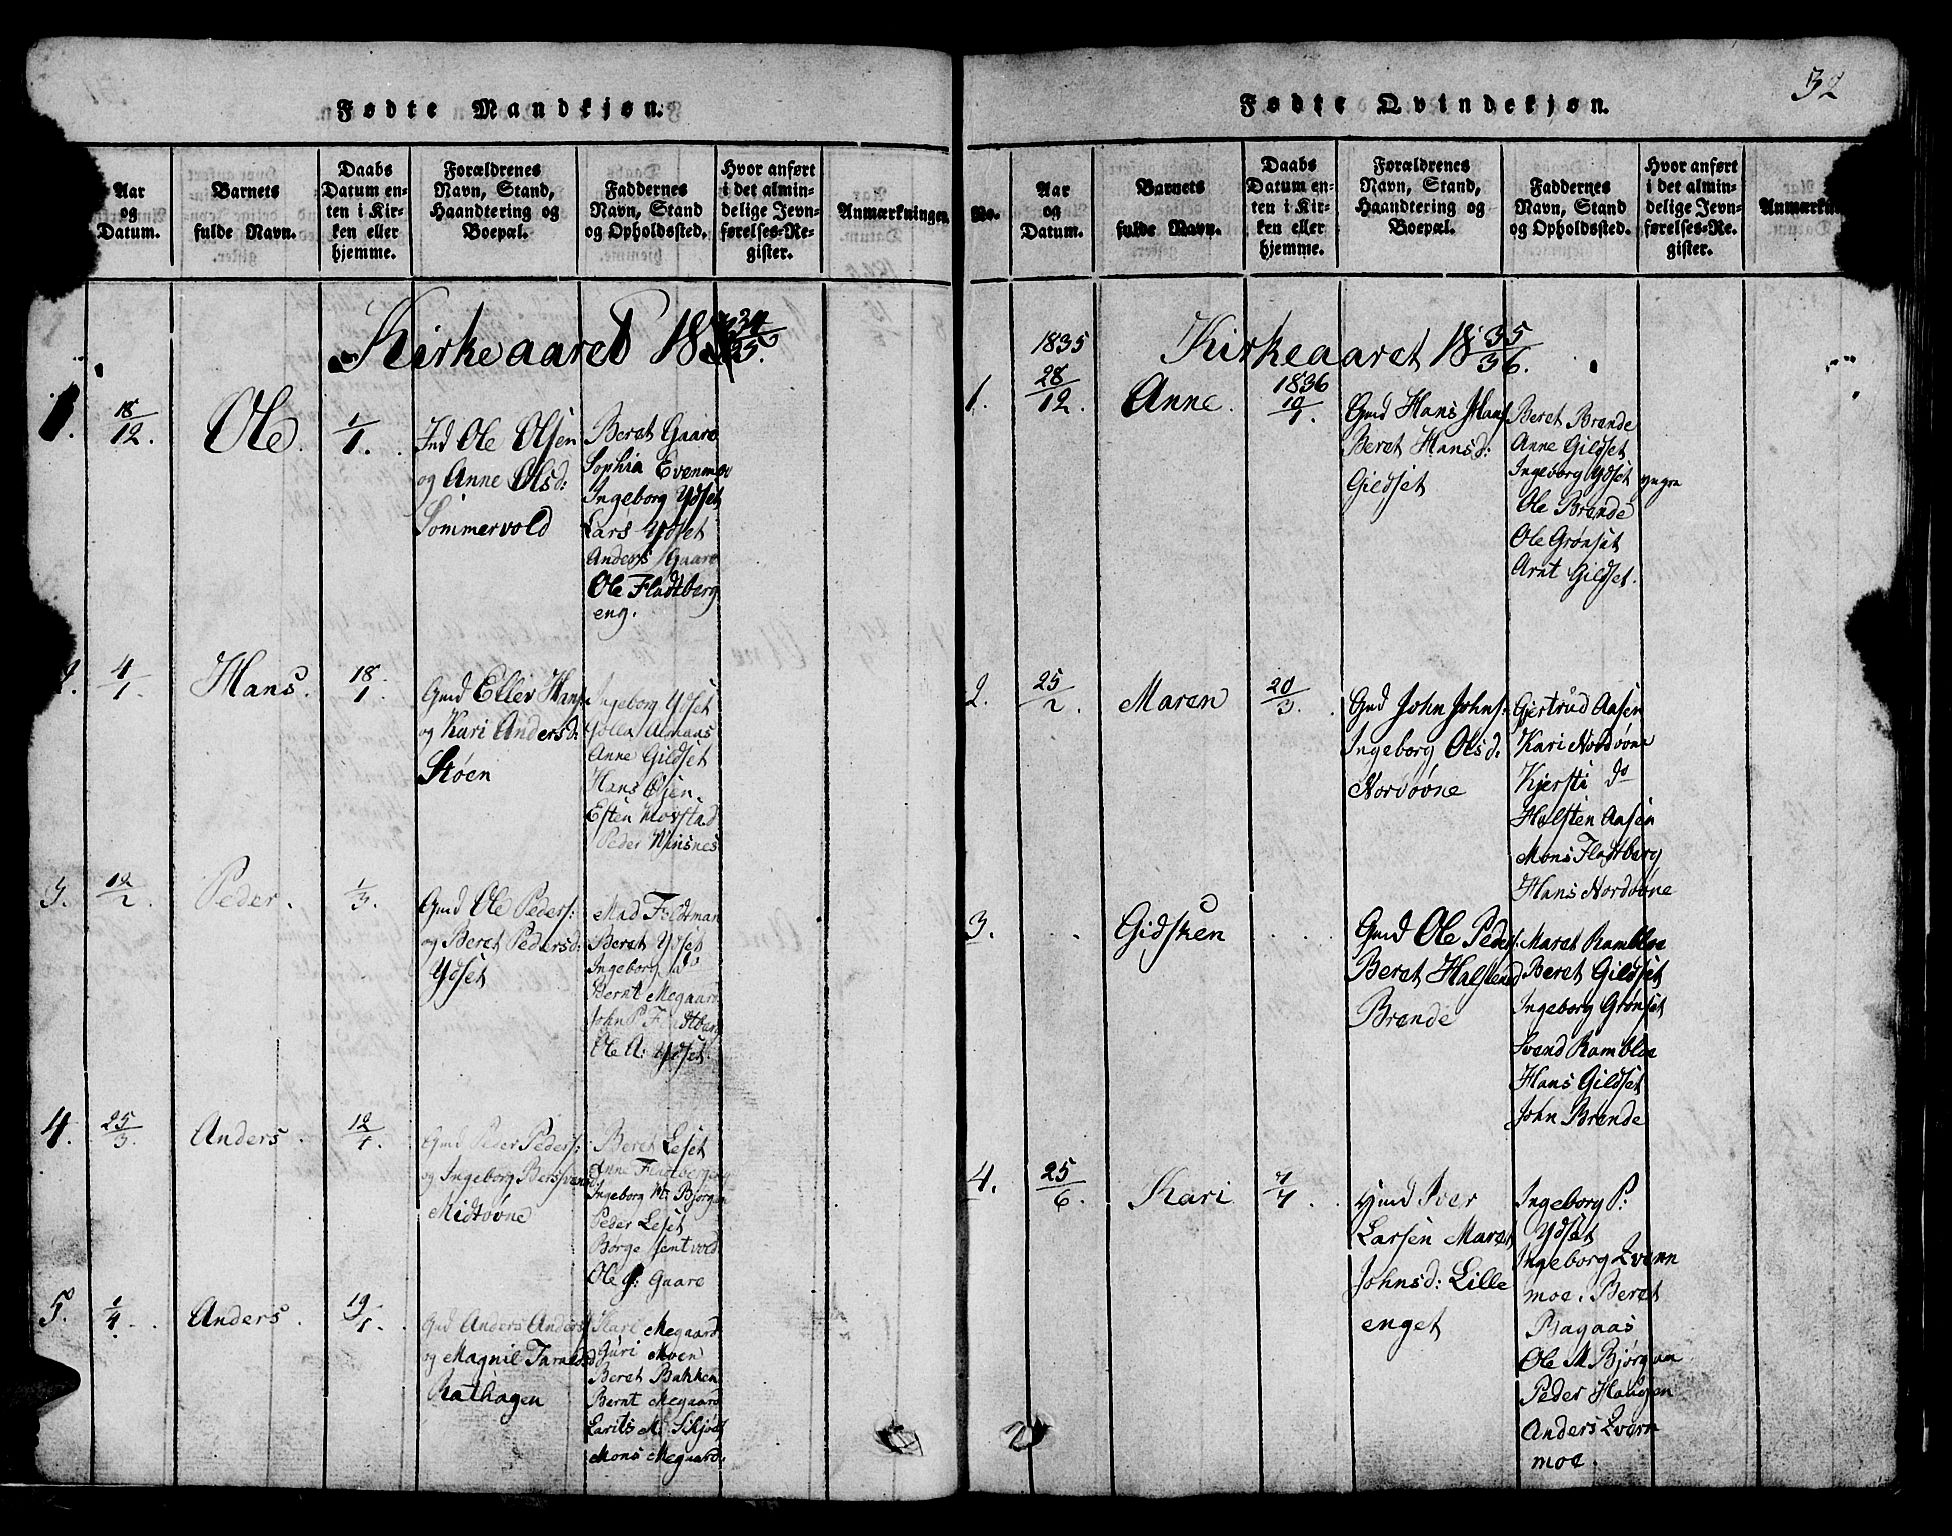 32
Fødte Mandkjøn.
Aar og Datum.
Barnets fulde Navn.
Daabs Datum enten i Kirken eller hjemme.
Forældrenes Navn, Stand, Haandtering og Boepæl.
Faddernes Navn, Stand og Opholdssted.
Hvor anført i det almindelige Jevnførelses-Register.
Anmærkninger.
Kirkeaaret 1834/35.
1. 18/12. Ole. 1/1.
Ind Ole Olsen
og Anne Olsd:
Sommervold
Beret Gaare
Sophia Evenmoe
Ingeborg Ydset
Lars Ydset
Anders Gaare
Ole Fladtberg
eng.
2. 4/1. Hans. 18/1.
Gmd Ellev Hans
og Kari Andersd:
Støen
Ingeborg Ydset
Almaas
Anne Gildset
Hans Olsen.
Esten Movstad
Peder
3. 12/2. Peder. 1/3.
Gmd Ole Peders:
og Beret Pedersd:
Ydset
Mad Feldtman
Beret Ydset
Ingeborg do
Bernt Megaard
John P. Fladtberg
Ole A: Ydset.
4. 25/3. Anders. 12/4.
Gmd Peder Peders:
og Ingeborg Berssvensd
Midtøvne
Beret Leset
Anne Fladtbergeng
Ingeborg M. Bjørgen
Peder Leset
Børge
Ole J: Gaare
5. 1/4. Anders. 19/4.
Gmd Anders Anders
og Magnil Jaraldsd
Rathagen
Kari Megaard
Guri Moen
Beret Bakken
Bernt Megaard
Larits M.
Mons Megaard.
Fødte Qvindekjøn.
No.
Aar og Datum.
Barnets fulde Navn.
Daabs Datum enten i Kirken eller hjemme.
Forældrenes Navn, Stand, Haandtering og Boepæl.
Faddernes Navn, Stand og Opholdssted.
Hvor anført i det almindelige Jevnførelses-Register.
Kirkeaaret 1835/36.
1835
1. 28/12. Anne. 1836 10/1.
Gmd Hans Hans
Beret Hansd:
Gildset
Beret Brænde
Anne Gildset
Ingeborg Ydset yngre
Ole Brænde
Ole Grønset
Arnt Gildset.
2. 25/2. Maren 20/3.
Gmd John Johns:
Ingeborg Olsd:
Nordøvne
Gjertrud Aasen
Kari Nordøvne
Kjersti do
Halsten Aasen
Mons Fladtberg
Hans Nordøvne
3. Gidsken
Gmd Ole Peders:
Beret Halstensd
Brænde
Maret Ramblæ
Beret Gildset
Ingeborg Grønset
Svend Ramblæ
Hans Gildset
John Brænde
4. 25/6. Kari 7/7
Gmd Iver
Larsen Maret
Johnsd: Lille
enget
Ingeborg P:
Ydset
Ingeborg Qvern
moe. Beret
Bagaas
Ole M. Bjørgen
Peder Haugen
Anders Qvern
moe.